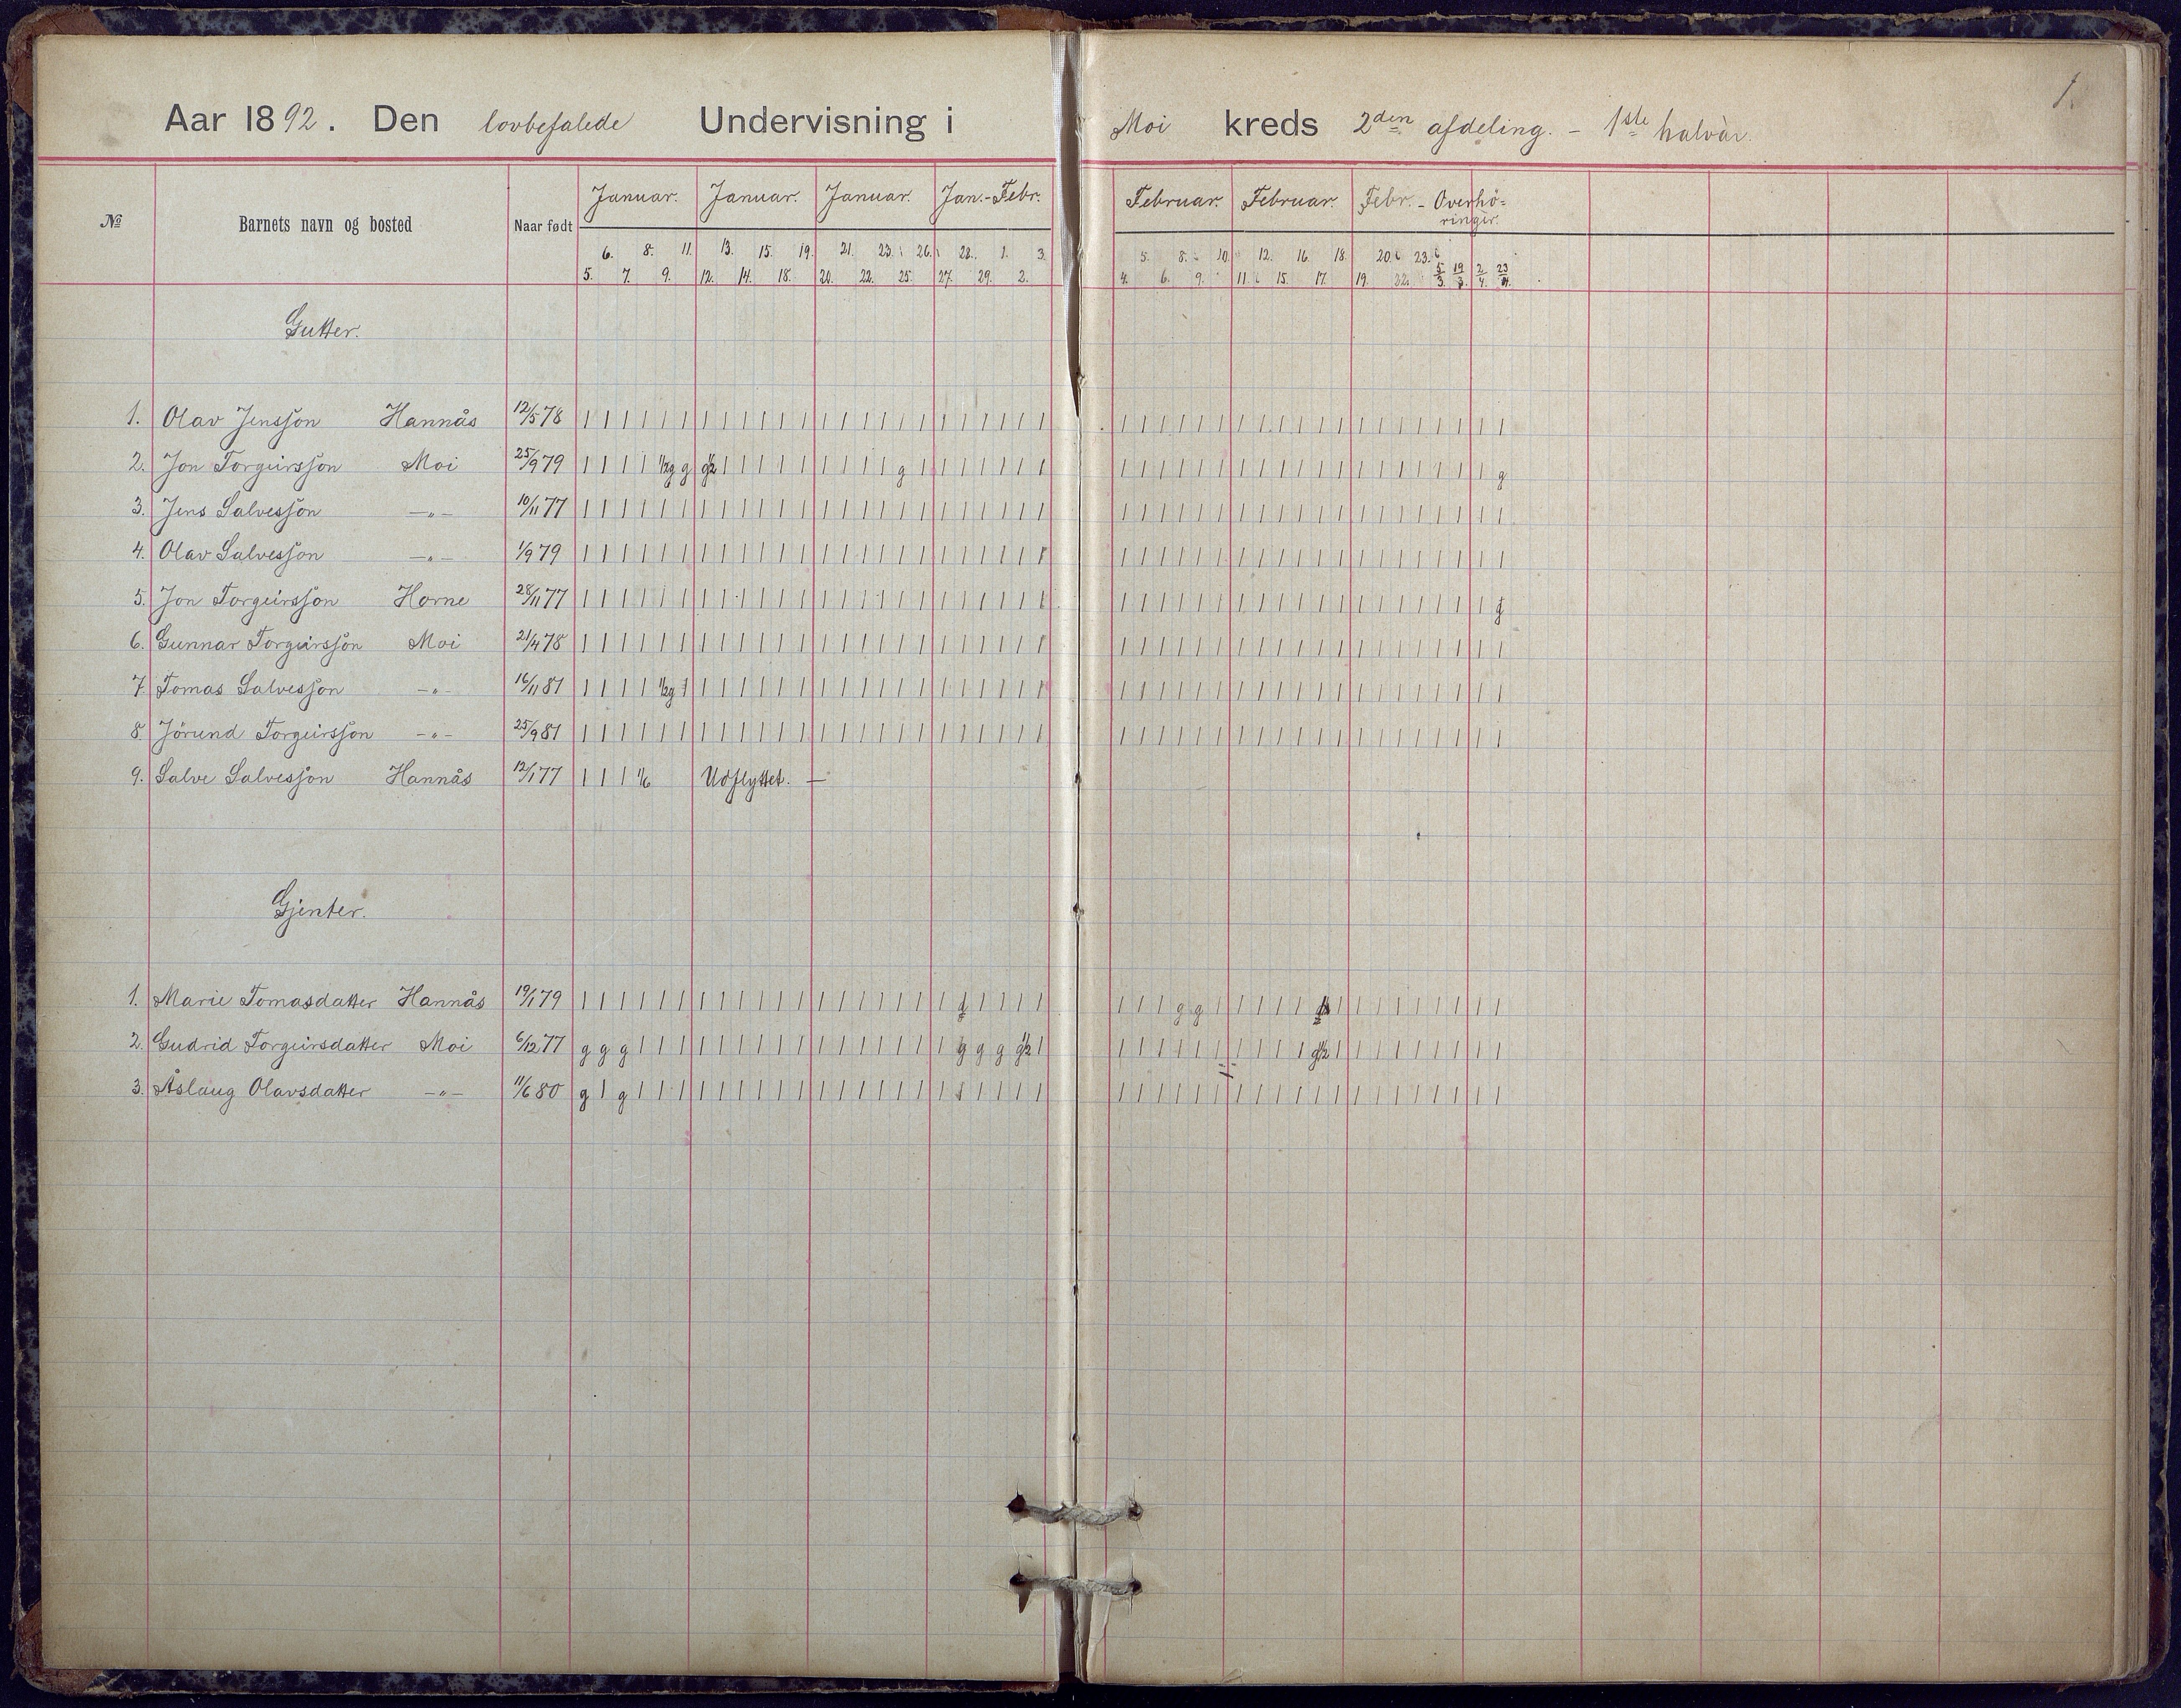 1.
Aar 1892. Den lovbefalede Undervisning i Moi kreds 2den afdeling. - 1ste halvår.
No Barnets navn og bosted Naar født Januar. Januar. Januar. Jan.-Febr. Februar. Februar. Febr. - Overhö=
ringer.
6. 8. 11. 13. 15. 19. 21. 23. 26. 28. 1. 3. 5. 8. 10. 12. 16. 18. 20. 23.
5. 7. 9. 12. 14. 18. 20. 22. 25. 27. 29. 2. 4. 6. 9. 11. 15. 17. 19. 22. 5/3. 19/3. 2/4. 23/4.
Gutter.
1. Olav Jensson Hannås 12/5 78 | | | | | | | | | | | | | | | | | | | | | | | | | | | | | | | | | | | | | | | | | | | | |
2. Jon Torgeirsson Moi 25/9 79 | | | | ½g g g½ | | | | | | | | | g | | | | | | | | | | | | | | | | | | | | | | | | | | | g
3. Jens Salvesson —"— 10/11 77 | | | | | | | | | | | | | | | | | | | | | | | | | | | | | | | | | | | | | | | | | | | |
4. Olav Salvesson —"— 1/9 79 | | | | | | | | | | | | | | | | | | | | | | | | | | | | | | | | | | | | | | | | | | | |
5. Jon Torgeirsson Horne 28/11 77 | | | | | | | | | | | | | | | | | | | | | | | | | | | | | | | | | | | | | | | | | | | g
6. Gunnar Torgeirsson Moi 21/4 78 | | | | | | | | | | | | | | | | | | | | | | | | | | | | | | | | | | | | | | | | | | | |
7. Tomas Salvesson —"— 16/11 81 | | | | ½g | | | | | | | | | | | | | | | | | | | | | | | | | | | | | | | | | | | | | | |
8. Jörund Torgeirsson —"— 25/9 81 | | | | | | | | | | | | | | | | | | | | | | | | | | | | | | | | | | | | | | | | | | | |
9. Salve Salvesson Hannås 12/1 77 | | | 1/6 Udflyttet. —
Gjenter.
1. Marie Tomasdatter Hannås 19/1 79 | | | | | | | | | | | | | | | | | | | g | | | | | | | g g | | | | | | | | | | | | | | |
2. Gudrid Torgeirsdatter Moi 6/12 77 g g g | | | | | | | | | | | | | | | | g g g g½ | | | | | | | | | | | g½ | | | | | | | | |
3. Åslaug Olavsdatter —"— 11/6 80 g | g | | | | | | | | | | | | | | | | | | | | | | | | | | | | | | | | | | | | | | | |